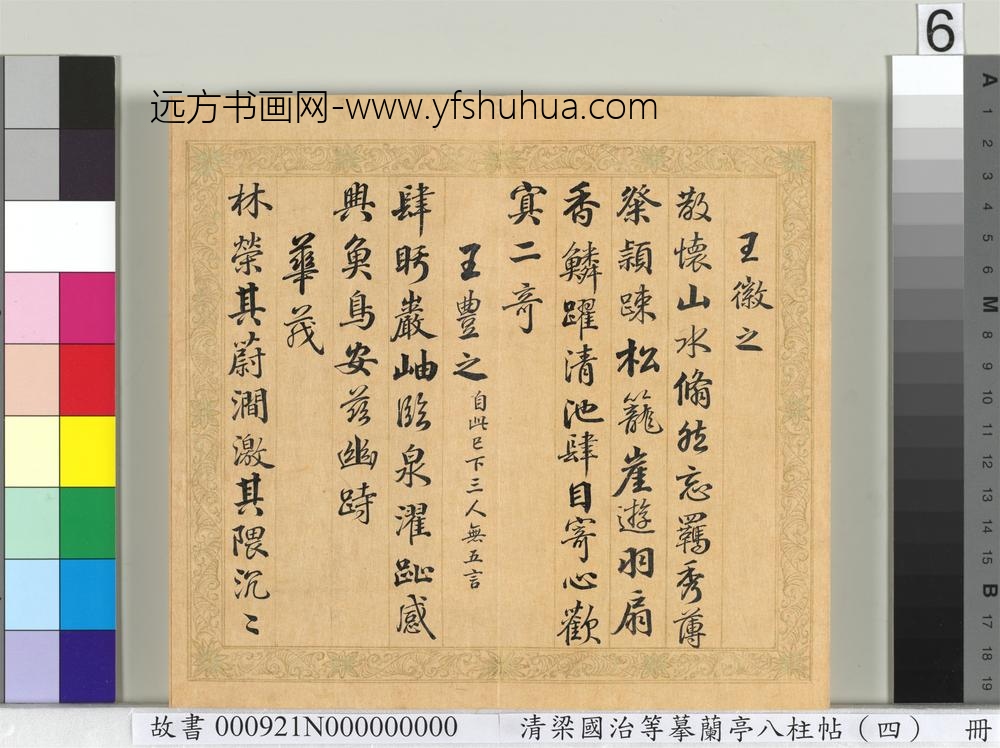 6
远方书画网-www.yfshuhua.com
王徽之
散懷山水翛然忘羈秀薄
粲穎踈松籠崖遊羽扇
香鱗躍清池肆目寄心歡
寘二奇
王豊之自此已下三人無五言
肆眄巖岫臨泉濯趾感
興魚鳥安茲幽跱
華茂
林榮其蔚澗激其隈汎〻
A 1 2 3 4 5 6 M 8 9 10 11 12 13 14 15 B 17 18 19
故書 000921N000000000 清梁國治等摹蘭亭八柱帖（四） 冊